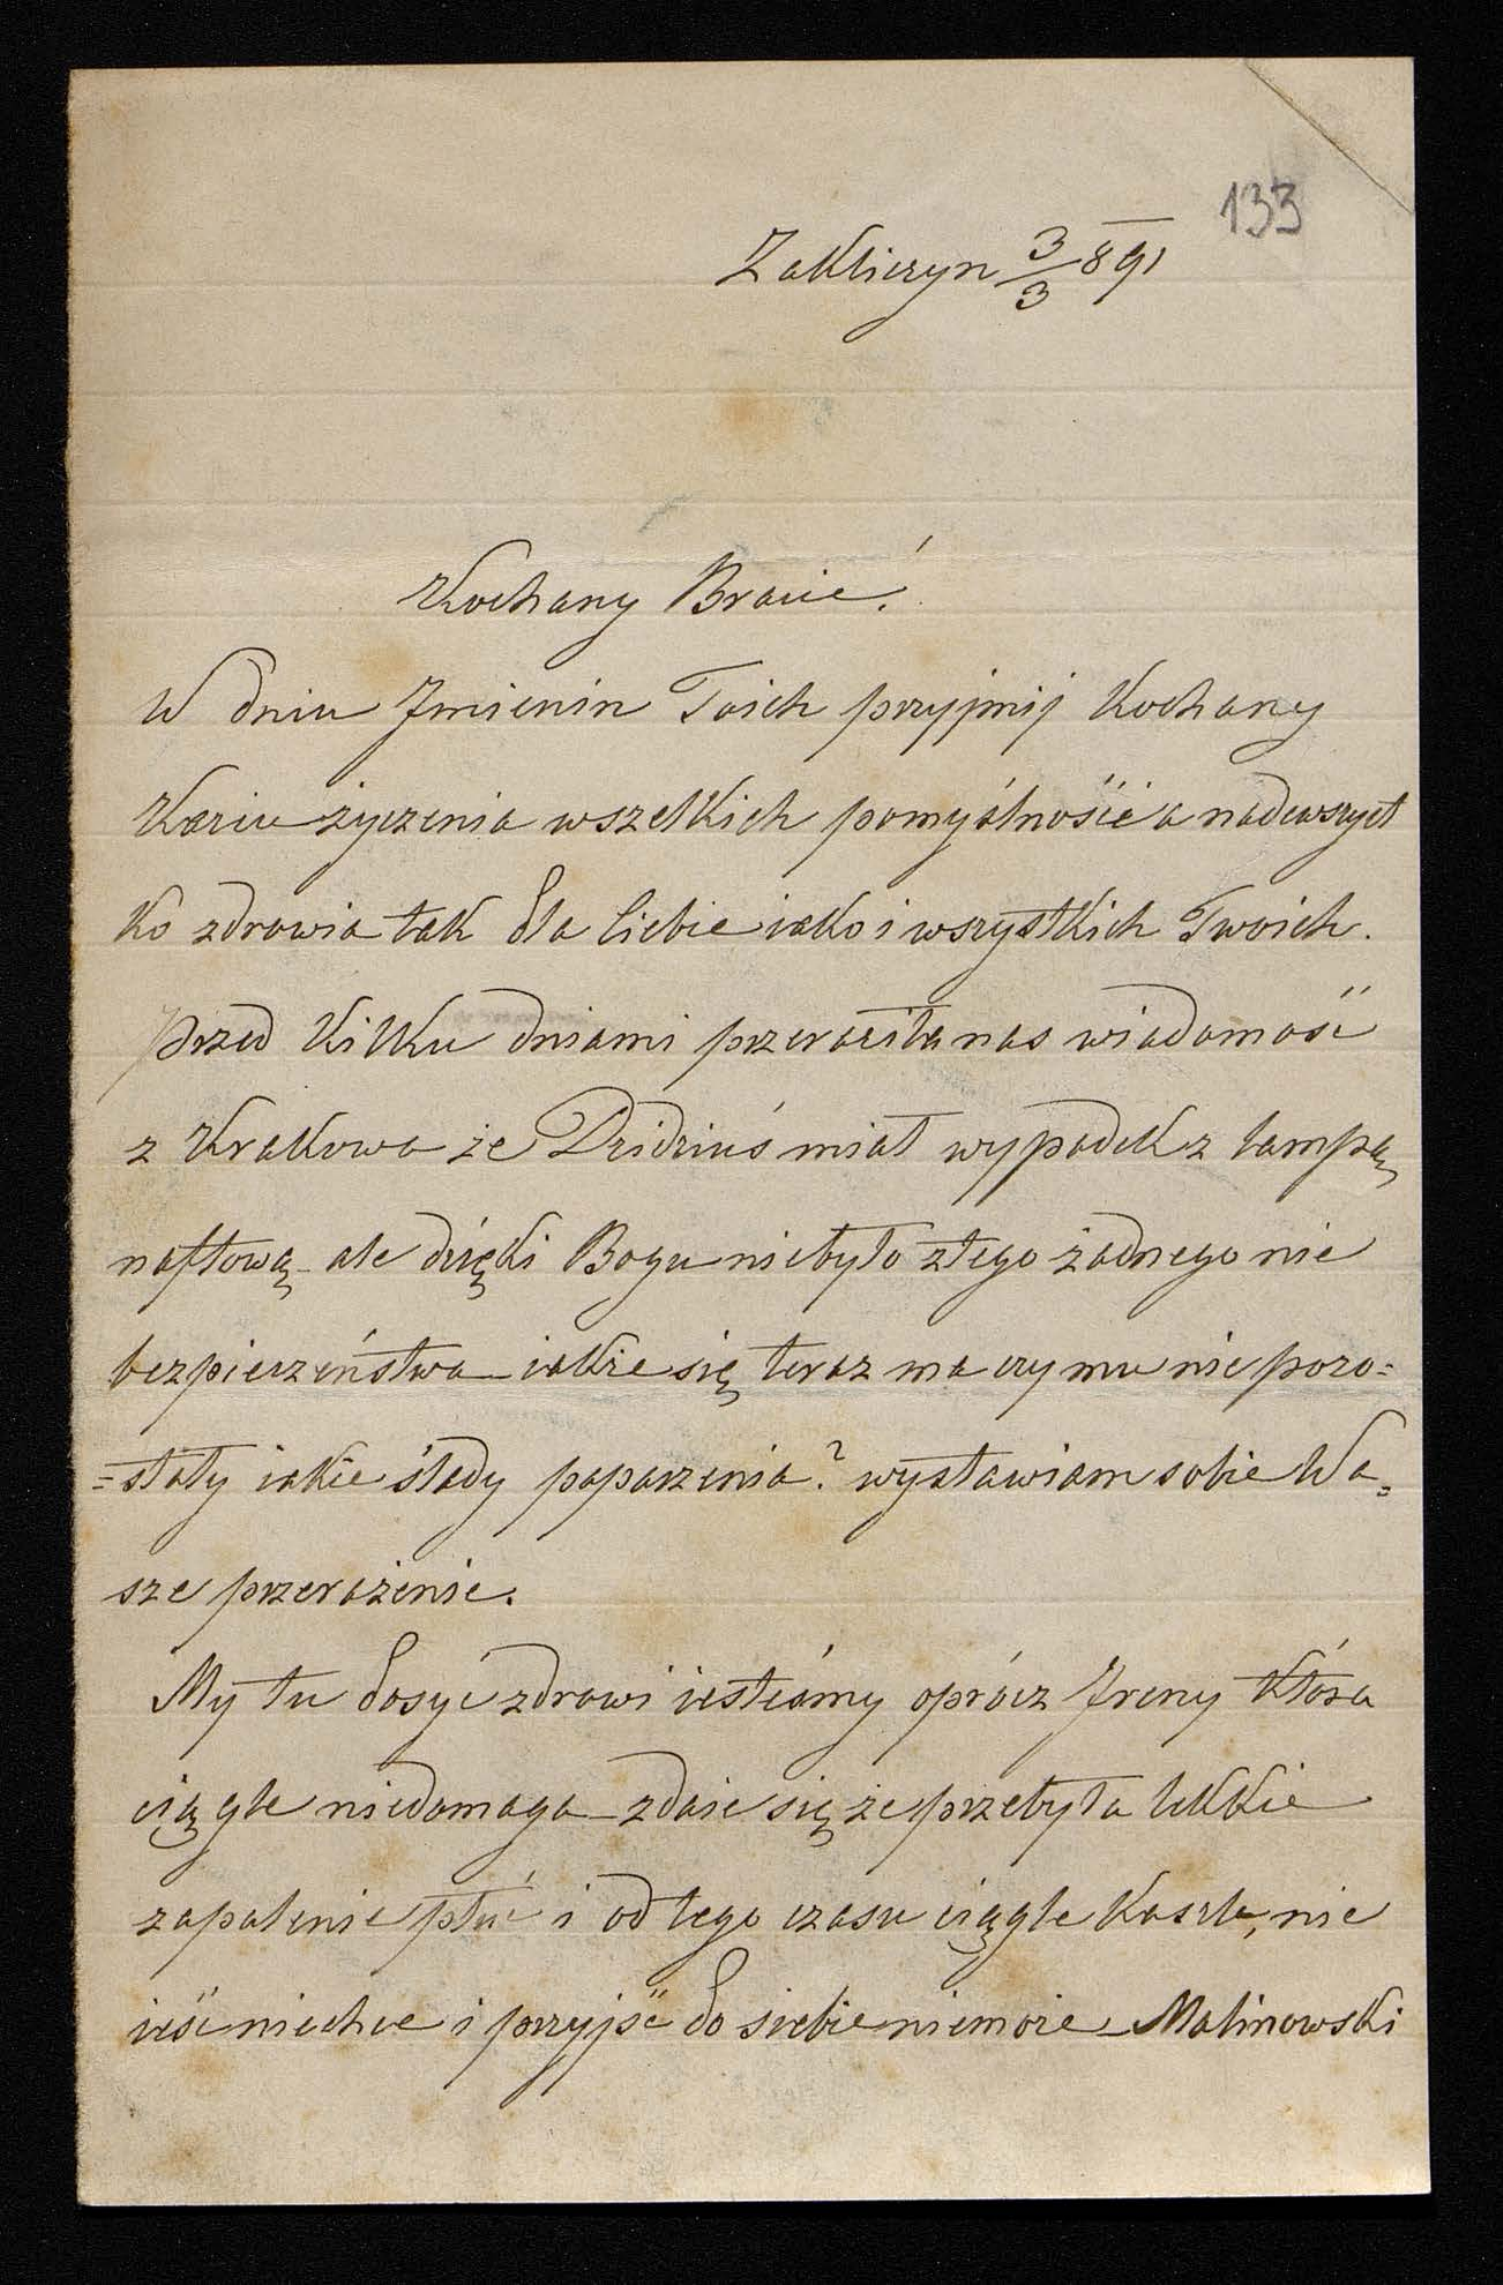 133
Zakliczyn 3/3 891
Kochany Bracie!
W dniu Imienin Twich przyjmij Kochany
Kaziu życzenia wszelkich pomyślność a nadewszyst
ko zdrowia tak dla Ciebie iako i wszystkich Twoich.
Przed kilku dniami przeraziła nas wiadomość
z Krakowa że Dzidziuś miał wypadek z lampą
naftową - ale dzięki Bogu niebyło złego żadnego nie
bezpieczeństwa - iakże się teraz ma czy mu nie pozo=
=stały iakie ślady poparzenia? wystawiam sobie Wa=
sze przerażenie.
My tu dosyć zdrowi iesteśmy oprócz Ireny która
ciągle niedomaga - zdaie się że przebyła lekkie
zapalenie płuc i od tego czasu ciągle kaszle, nie
ieść niechce i przyjść do siebie niemoże - Malinowski